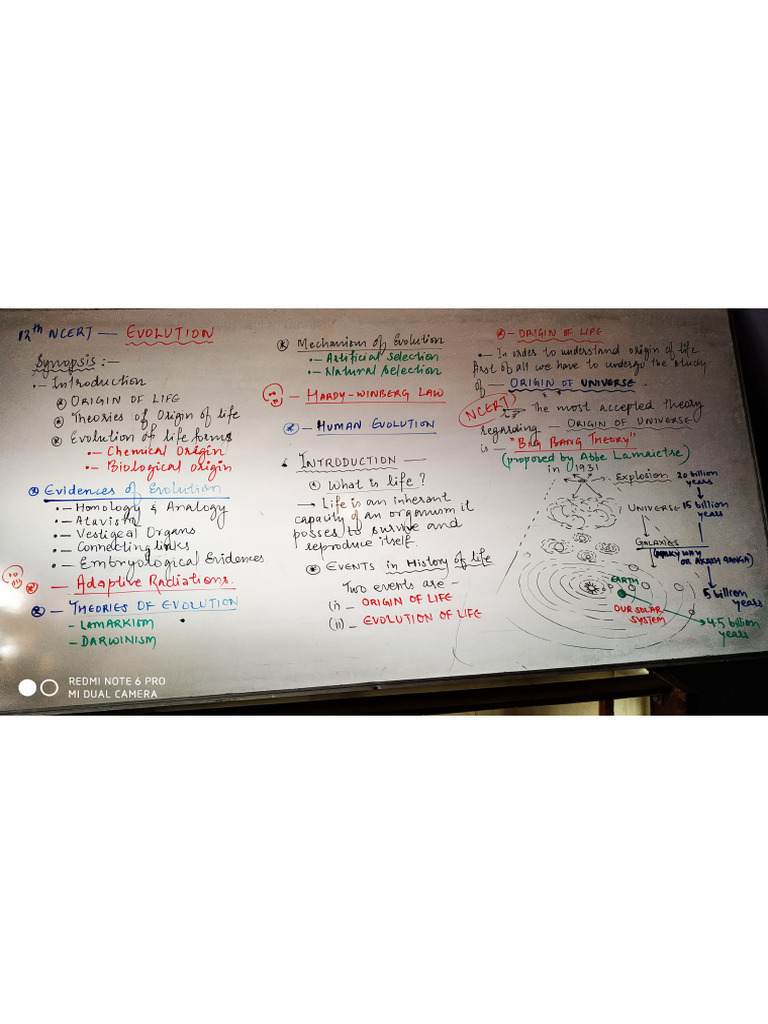 12th NCERT — EVOLUTION
Synopsis :-
•- Introduction
ORIGIN OF LIFE
Theories of Origin of life
Evolution of life forms
•- Chemical Origin
•- Biological Origin
Evidences of Evolution
•- Homology & Analogy
•- Atavism
•- Vestigeal Organs
•- Connecting links
•- Embryological Evidences
— Adaptive Radiations.
— THEORIES OF EVOLUTION
- LAMARKISM
- DARWINISM
Mechanism of Evolution
•- Artificial Selection
•- Natural Selection
- HARDY-WINBERG LAW
- HUMAN EVOLUTION
INTRODUCTION —
What is life ?
→ Life is an inherant
capacity of an organism it
posses to survive and
reproduce itself.
EVENTS in History of life
Two events are -
(i) - ORIGIN OF LIFE
(ii) - EVOLUTION OF LIFE
- ORIGIN OF LIFE
•- In order to understand origin of life
first of all we have to undergo the study
of — ORIGIN OF UNIVERSE.
NCERT
The most accepted theory
regarding - ORIGIN OF UNIVERSE
is - "BIG BANG THEORY"
(proposed by Abbe Lamaietre)
in 1931
Explosion 20 billion
years
UNIVERSE 15 billion
years
GALAXIES
(MILKY WAY
OR AKASH GANGA)
EARTH
5 billion
years
OUR SOLAR
SYSTEM
4.5 billion
years
REDMI NOTE 6 PRO
MI DUAL CAMERA